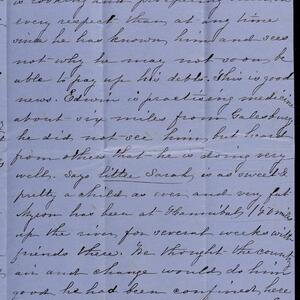 is looking and prospering
every respect than at any time
since he has known him and sees
not why he may not soon be
able to pay up his debts. This is good
news. Edwin is practising medicine
about six miles from Galesburg
he did not see him, but heard
from others that he is doing very
well. Says little Sarah is as sweet &
pretty a child as ever and very fat
Myron has been at Hannibal
up the river for several weeks with
friends there. He thought the country
air and change would do him
good he had been confined, here